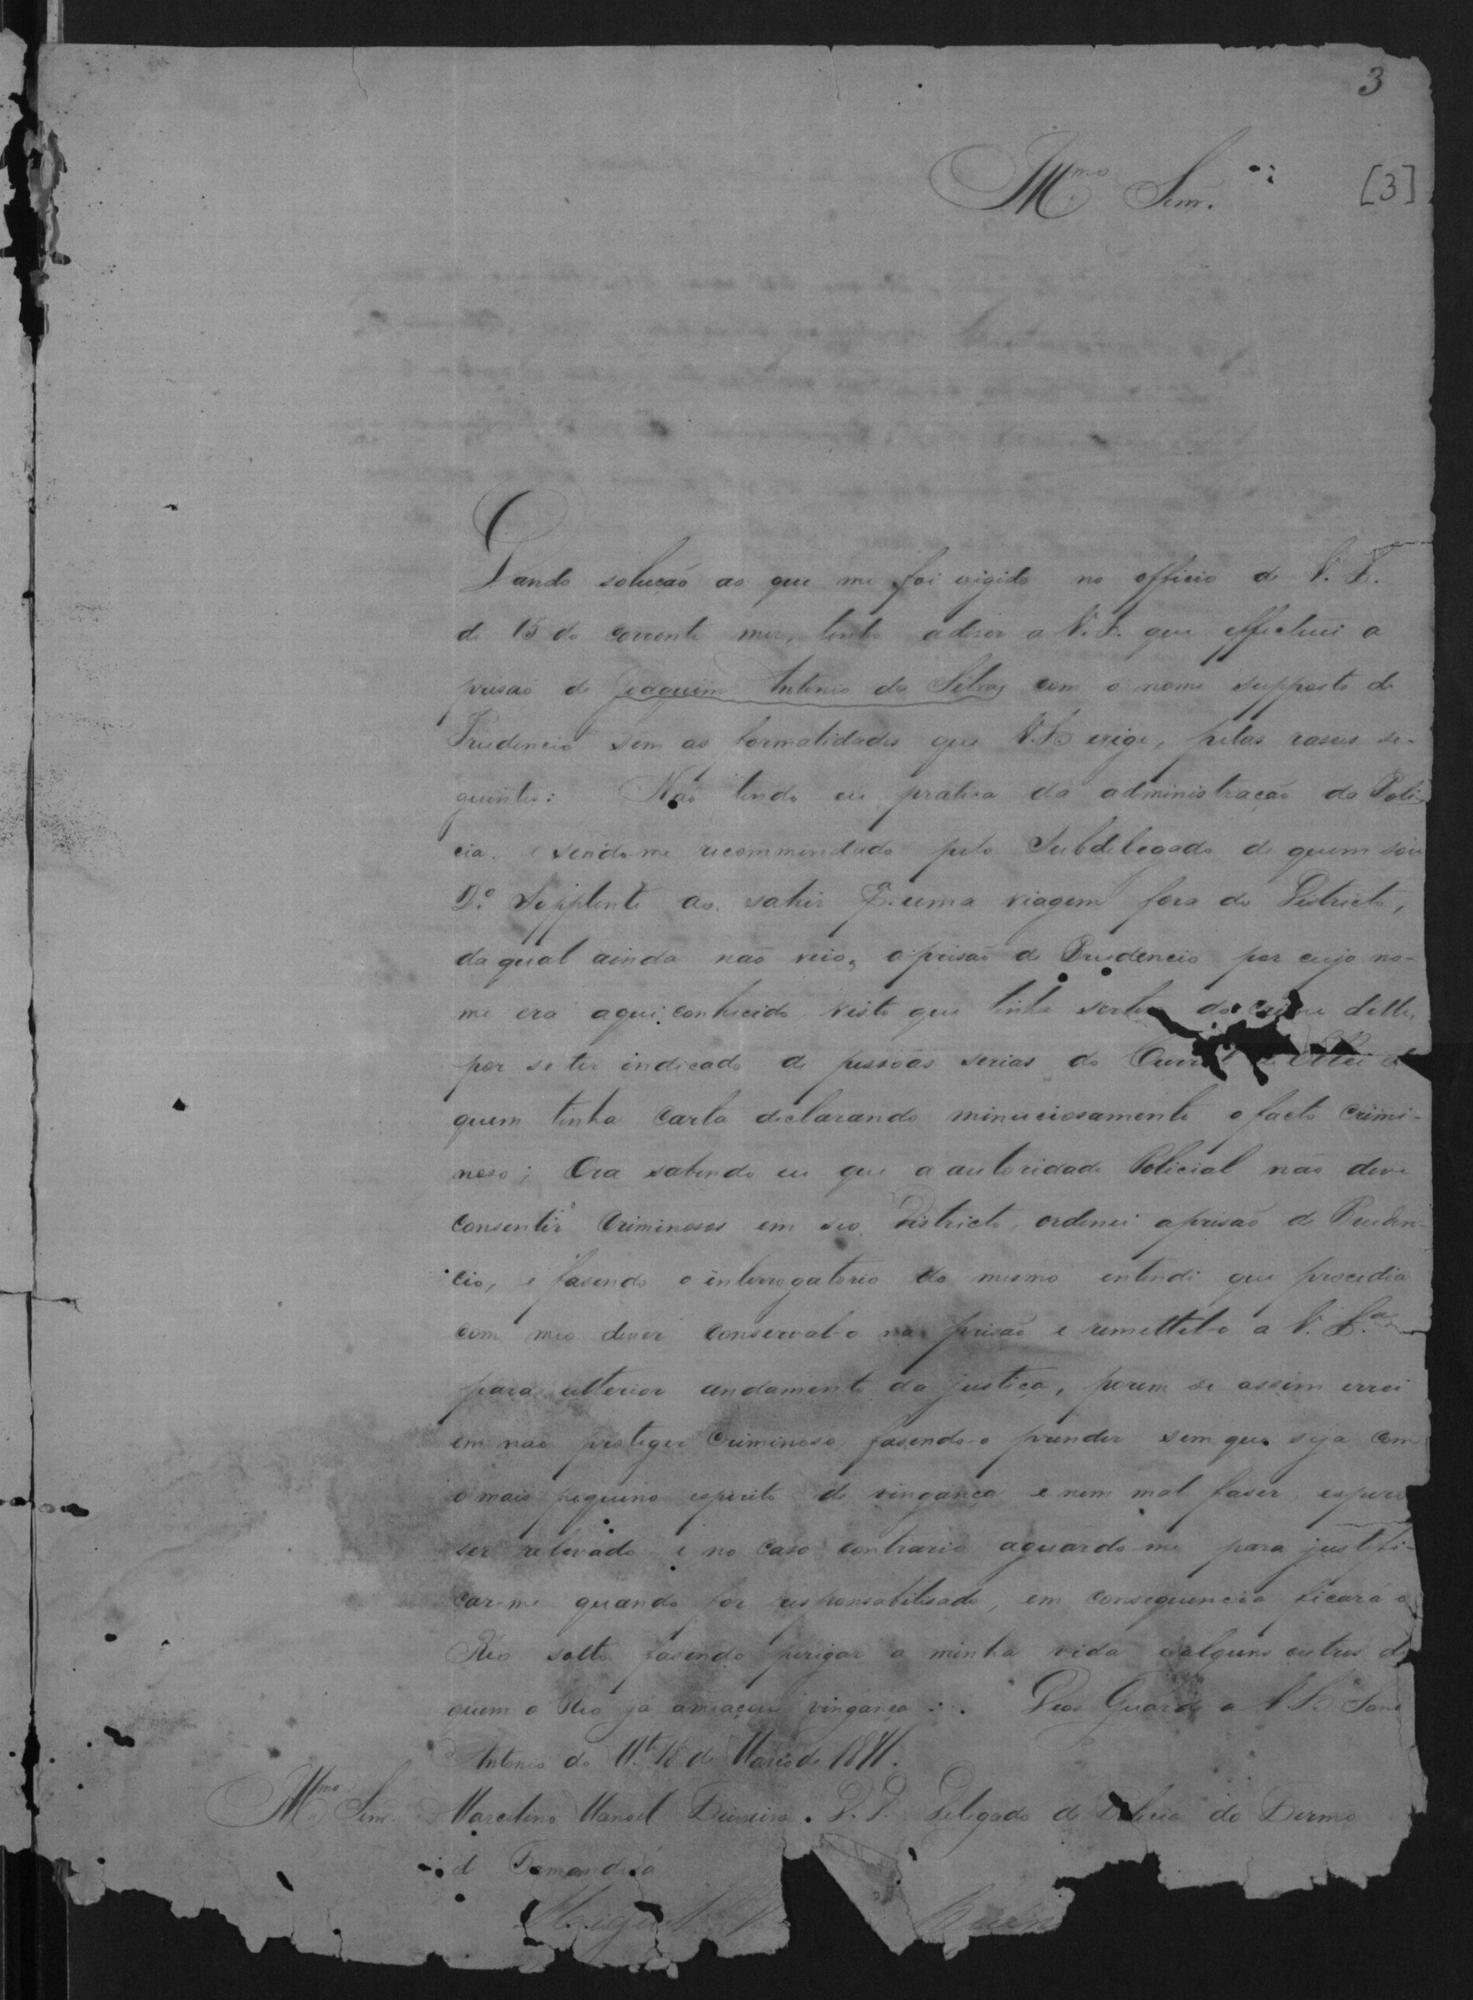 3
Illmo Senr.
[3]
Dando solução ao que me foi exigido no officio de V. S.
de 15 do corrente mez, tenho a diser a V. S. que effectuei a
prisão de Joaquim Antonio da Silva, com o nome supposto de
Prudencio sem as formalidades que V. S. exige, pelas rasões se-
guintes: Não tendo eu pratica da administração da Poli-
cia, e sendo-me recommendado pelo Subdelegado de quem sou
2º Supplente ao sahir p.ª uma viagem fora do Districto,
da qual ainda não veio, a prisão de Prudencio por cujo no-
me era aqui conhecido, visto que tinha do crime delle,
por se ter indicado de pessoas serias do
quem tinha carta declarando minuciosamente o facto crimi-
noso; Ora sabendo eu que a autoridade Policial não deve
consentir Criminosos em seo Districto, ordenei a prisão de Pruden-
cio, e fasendo o interrogatorio do mesmo entendi que procedia
com meo dever conserval-o na prisão e remettel-o a V. S.ª
para ulterior andamento da justiça, porem se assim errei
em não proteger Criminoso, fasendo-o prender sem que seja com
o mais pequeno espirito de vingança e nem mal faser, espero
ser relevado e no caso contrario aguardo-me para justifi-
car-me quando for responsabilisado, em consequencia ficará o
Reo solto fasendo perigar a minha vida e alguns outros de
quem o Reo já ameaçou vingança. Deos Guarde a V. S. Santo
Antonio do de Março de
Illmo Senr. Marcelino Manoel Teixeira. D. D. Delegado de Policia do Termo
d Tamanduá
Miguel